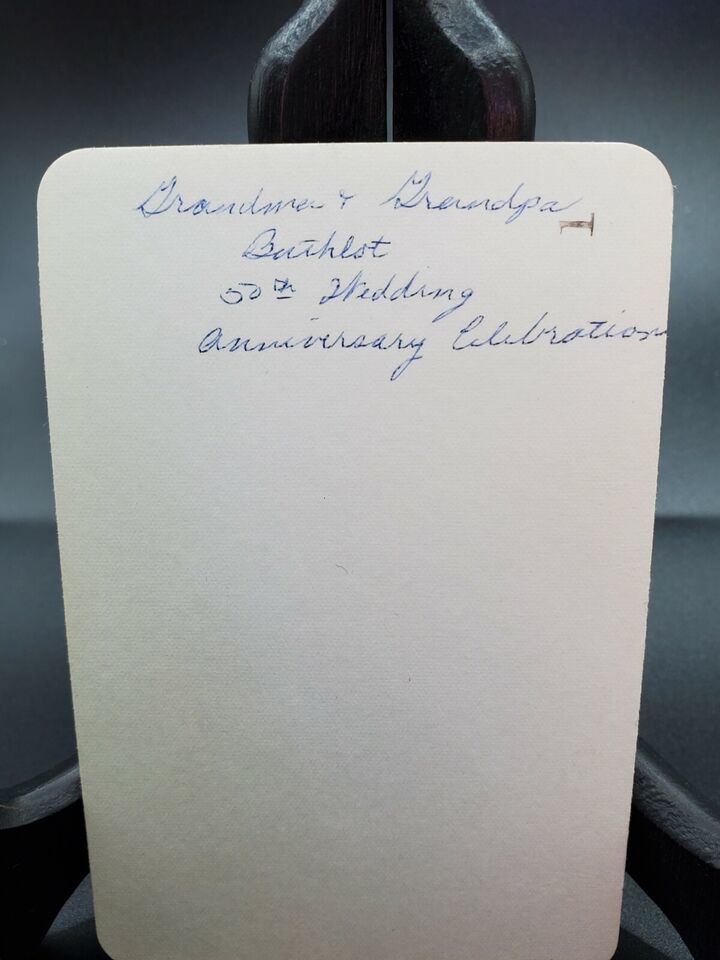 Grandma & Grandpa
50th Wedding
Anniversary Celebration